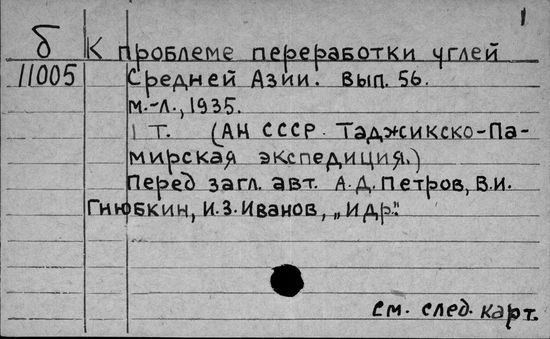 1
б К проблеме переработки углей
11005 Средней Азии. Вып. 56.
м.-л., 1935.
1 т. (АН СССР. Таджикско-Па-
мирская экспедиция.)
Перед загл. авт. А.Д. Петров, В.И.
Гнюбкин, И.З. Иванов, „и др."
См. след. карт.